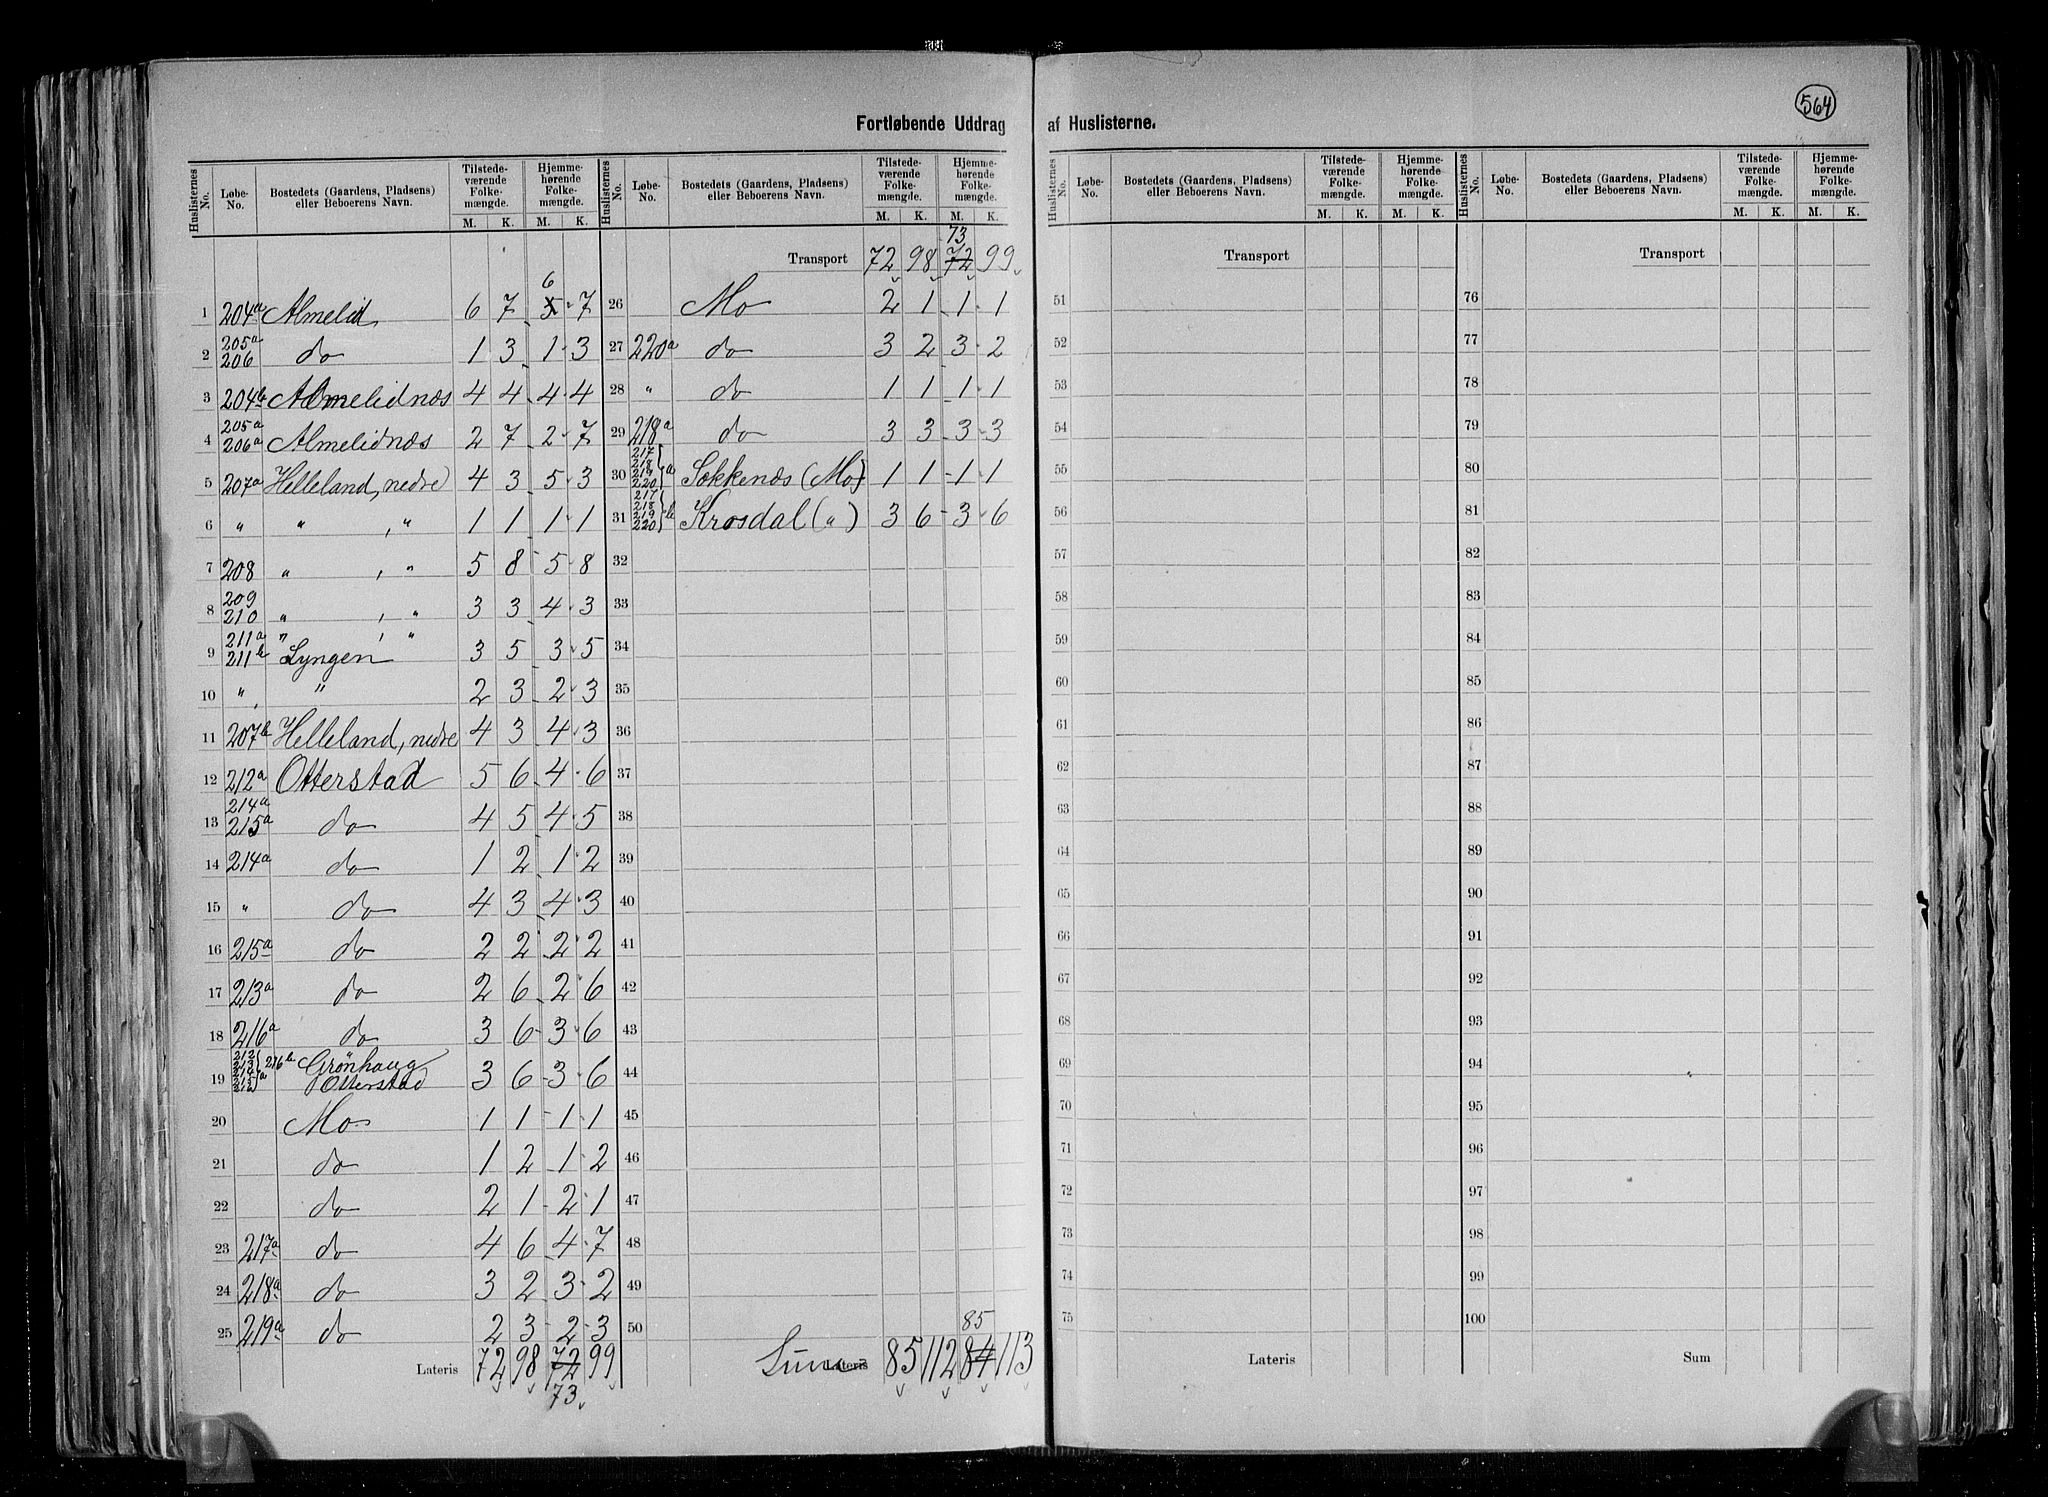 564
Fortløbende Uddrag af Huslisterne.
Huslisternes No. Løbe-No. Bostedets (Gaardens, Pladsens) eller Beboerens Navn. Tilstedeværende Folkemængde. M. K. Hjemmehørende Folkemængde. M. K.
1 204a Almelid 6 7 5 6 7
2 205a 206 do 1 3 1 3
3 204b Almelidnæs 4 4 4 4
4 205a 206a Almelidnæs 2 7 2 7
5 207a Helleland, nedre 4 3 5 3
6 " " , " 1 1 1 1
7 208 " , " 5 8 5 8
8 209 210 " , " 3 3 4 3
9 211a 211b " , " Lyngen 3 5 3 5
10 " " 2 3 2 3
11 207b Helleland, nedre 4 3 4 3
12 212a Otterstad 5 6 4 6
13 214a 215a do 4 5 4 5
14 214a do 1 2 1 2
15 " do 4 3 4 3
16 215a do 2 2 2 2
17 213a do 2 6 2 6
18 216a do 3 6 3 6
19 212 213 214 215 216 a 216b Grönhaug Otterstad 3 6 3 6
20 Mo 1 1 1 1
21 do 1 2 1 2
22 do 2 1 2 1
23 217a do 4 6 4 7
24 218a do 3 2 3 2
25 219a do 2 3 2 3
Lateris 72 98 72 99
73
Huslisternes No. Løbe-No. Bostedets (Gaardens, Pladsens) eller Beboerens Navn. Tilstedeværende Folkemængde. M. K. Hjemmehørende Folkemængde. M. K.
73
Transport 72 98 72 99
26 Mo 2 1 1 1
27 220a do 3 2 3 2
28 " do 1 1 1 1
29 218a do 3 3 3 3
30 217 218 219 220 a Søkkenæs (Mo) 1 1 1 1
31 217 218 219 220 b Krosdal (") 3 6 3 6
32
33
34
35
36
37
38
39
40
41
42
43
44
45
46
47
48
49
50
85
Lateris Summa 85 112 84 113
Huslisternes No. Løbe-No. Bostedets (Gaardens, Pladsens) eller Beboerens Navn. Tilstedeværende Folkemængde. M. K. Hjemmehørende Folkemængde. M. K.
Transport
51
52
53
54
55
56
57
58
59
60
61
62
63
64
65
66
67
68
69
70
71
72
73
74
75
Lateris
Huslisternes No. Løbe-No. Bostedets (Gaardens, Pladsens) eller Beboerens Navn. Tilstedeværende Folkemængde. M. K. Hjemmehørende Folkemængde. M. K.
Transport
76
77
78
79
80
81
82
83
84
85
86
87
88
89
90
91
92
93
94
95
96
97
98
99
100
Sum